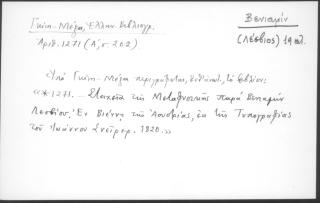 Γκίνη-Μέξα, Ἑλλην. Βιβλιογρ.
Βενιαμὶν
Ἀριθ. 1271 (Α΄, σ. 202)
(Λέσβιος) 19 αἰ.
Ὑπὸ Γκίνη-Μέξα περιγράφεται, τὸ βιβλίον:
«*1271. Στοιχεῖα τῆς Μεταφυσικῆς παρὰ Βενιαμὶν
Λεσβίου. Ἐν Βιέννῃ τῆς Ἀουστρίας, ἐκ τῆς Τυπογραφίας
τοῦ Ἰωάννου Σνείρερ. 1820.»